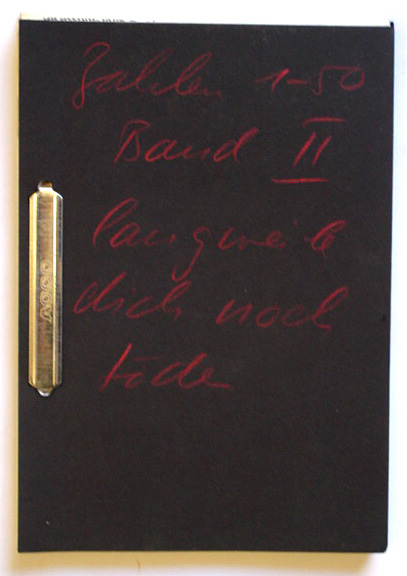 Zahlen 1-50
Band II
langweile
dich noch
tode